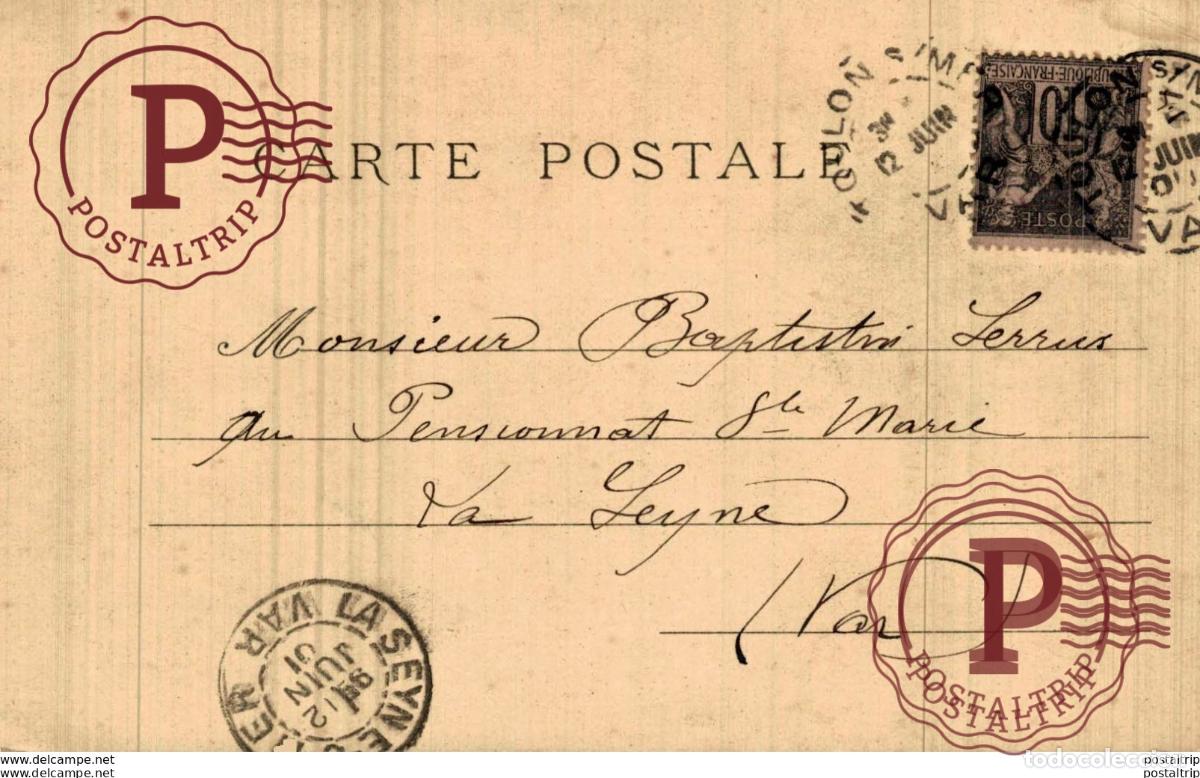 P
POSTALTRIP
CARTE POSTALE
TOULON S/MER
12 JUIN
VAR
REPUBLIQUE-FRANÇAISE
10
POSTE
TOULON S/M
JUIN
01
VA
Monsieur Baptistin Serrus
au Pensionnat Ste Marie
La Seyne
(Var)
LA SEYNE-S-MER
12
JUIN
01
VAR
P
POSTALTRIP
POSTALTRIP
todocoleccion
www.delcampe.net
postaltrip
www.delcampe.net
postaltrip